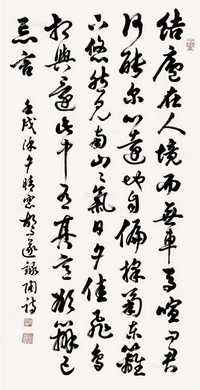 結廬在人境而無車馬喧問君
何能尔心遠地自偏採菊東籬
下悠然見南山〻氣日夕佳飛鳥
相與還此中有真意欲辯已
忘言
壬戌除夕晴窗遂錄陶詩